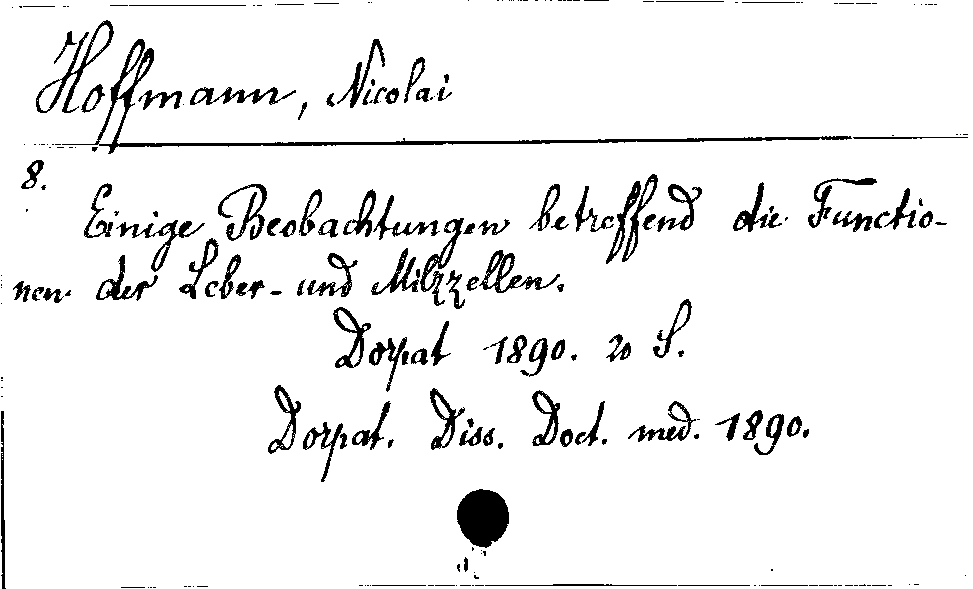 Hoffmann, Nicolai
8.
Einige Beobachtungen betreffend die Functio-
nen der Leber- und Milzzellen.
Dorpat 1890. 20 S.
Dorpat. Diss. Doct. med. 1890.